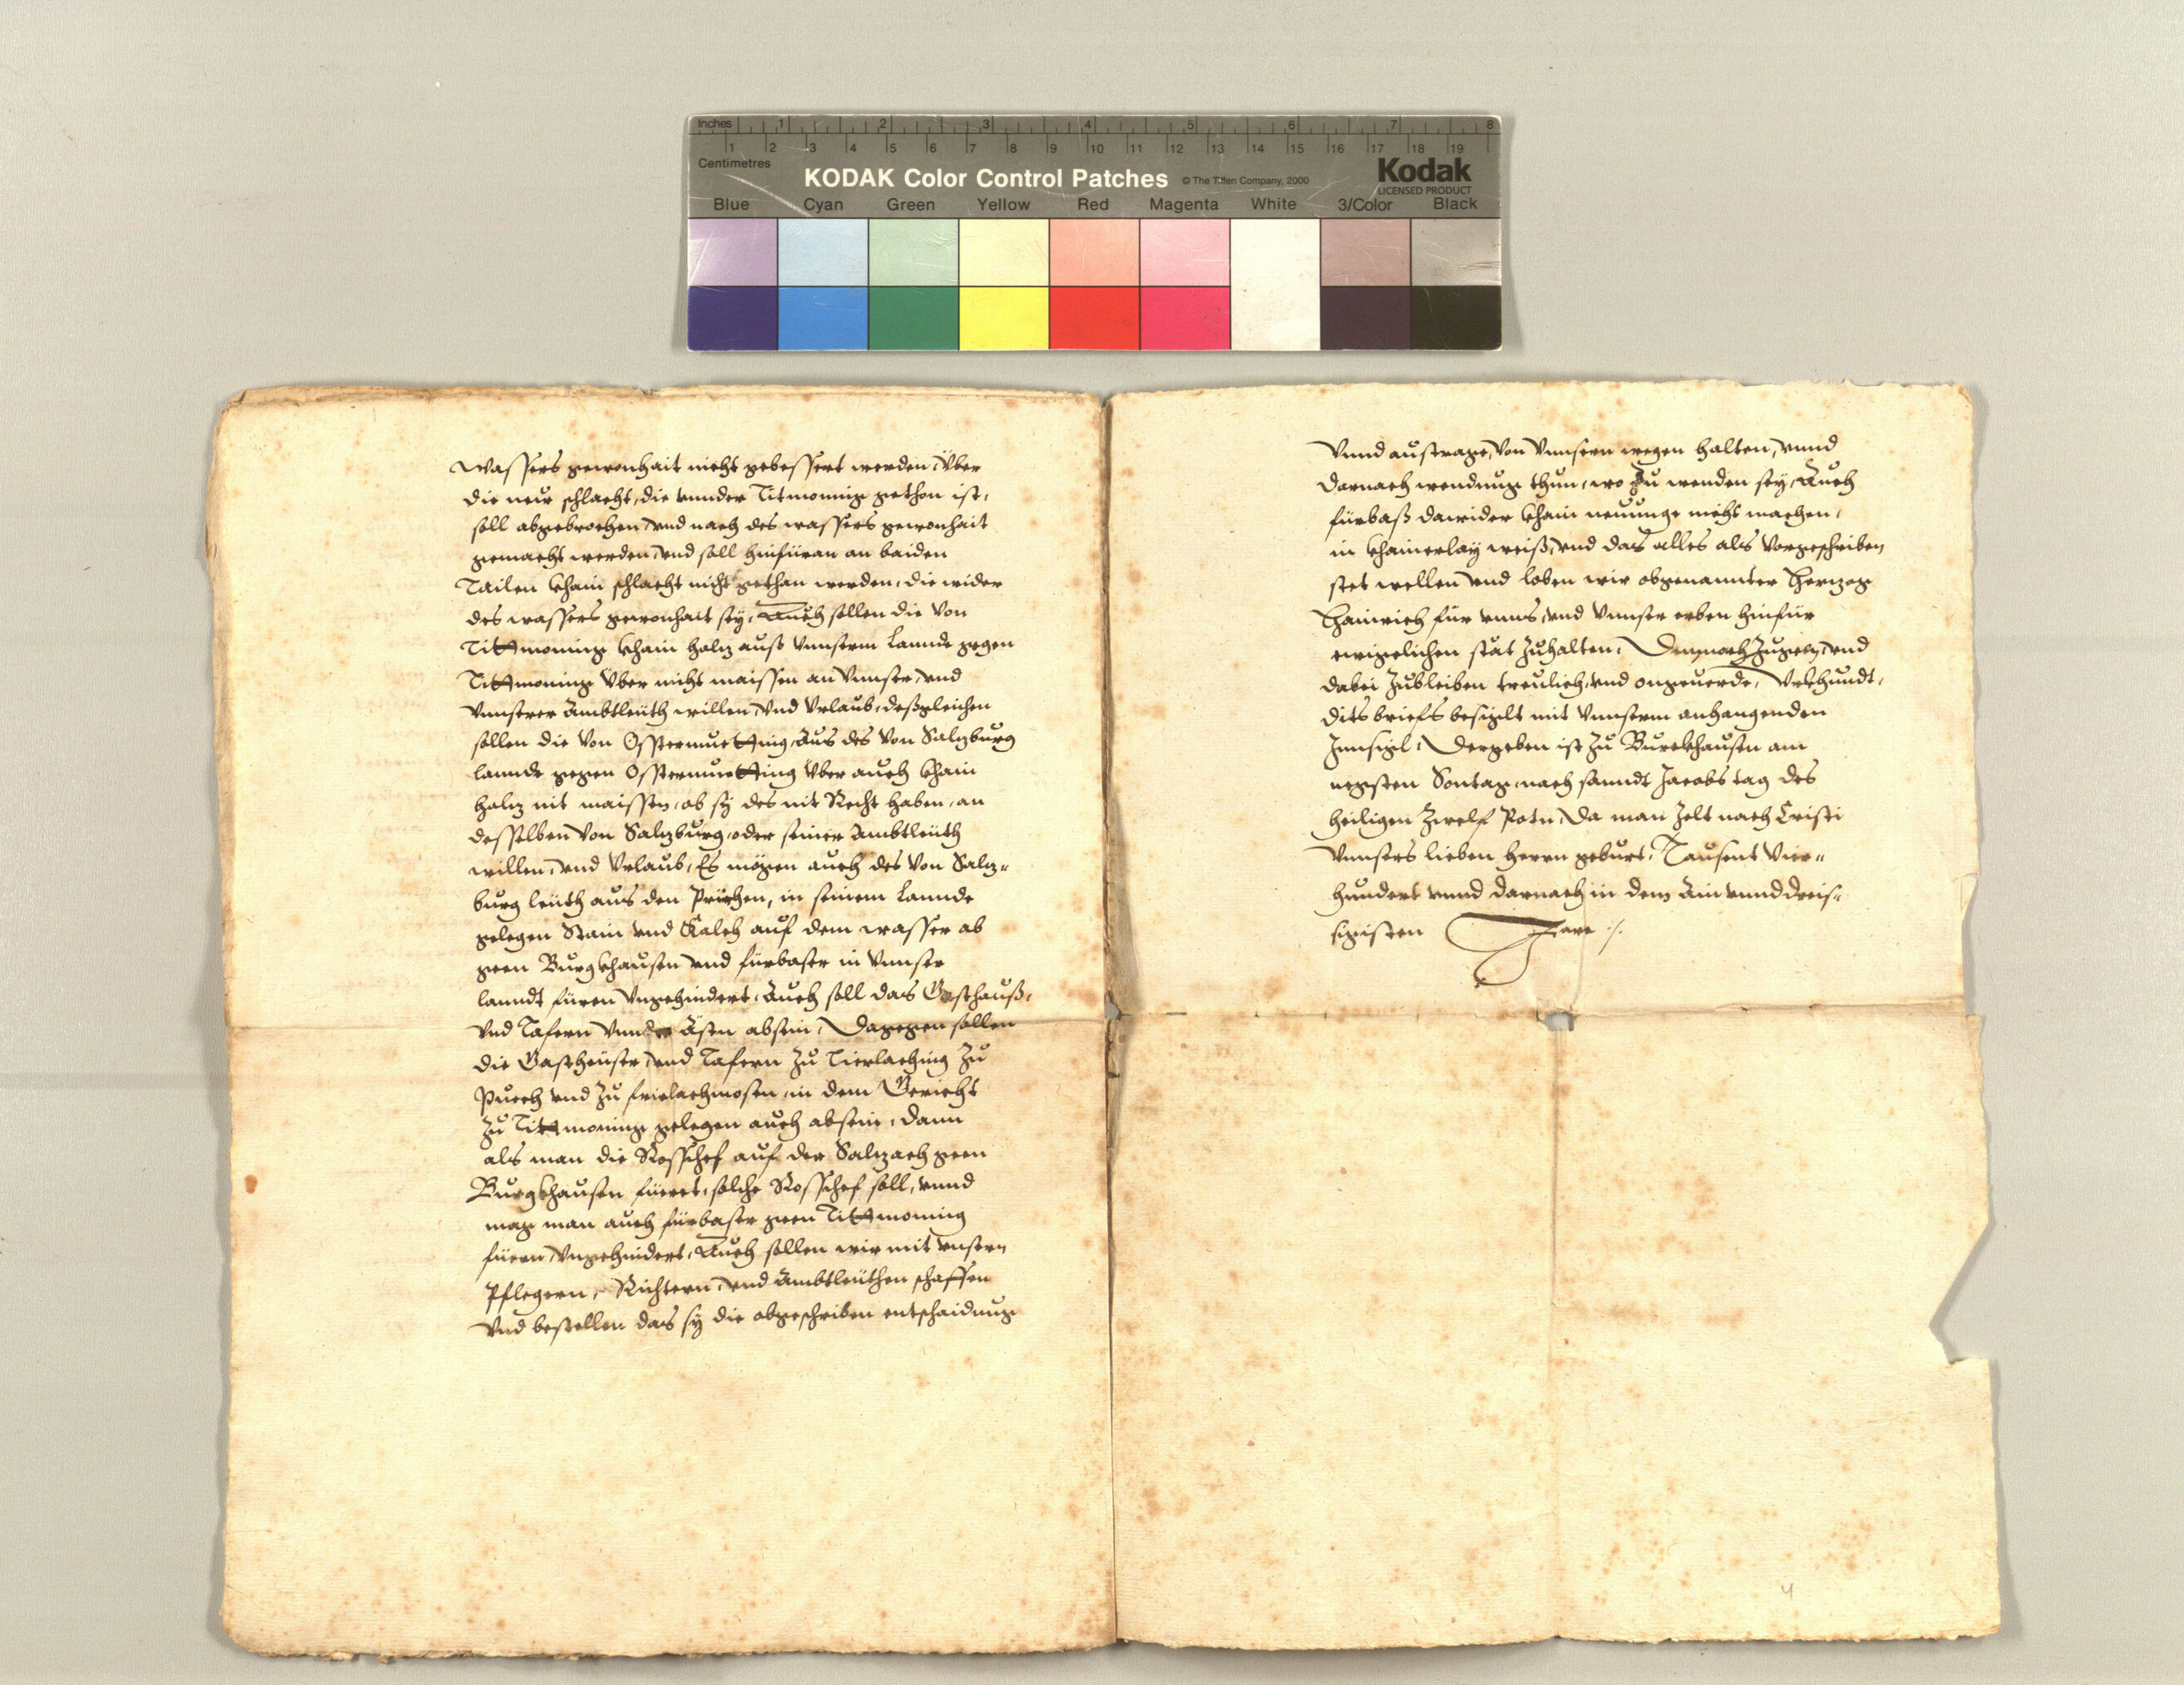 Inches 1 2 3 4 5 6 7 8
1 2 3 4 5 6 7 8 9 10 11 12 13 14 15 16 17 18 19
Centimetres
KODAK Color Control Patches © The Tiffen Company, 2000
Kodak
LICENSED PRODUCT
Blue Cyan Green Yellow Red Magenta White 3/Color Black
wassers gewonhait nicht gebessert werden, Vber
die neir schlacht, die vnnder Titmoning gethon ist,
soll abgebrochen, vnd nach des wassers gewonhait
gemacht werden, vnd soll hinfüran an baiden
Tailen khain schlacht nicht gethan werden, die wider
des wassers gewonhait sey, Auch sollen die von
Tittmoning khain holz auß vnnserm Lannde gegen
Tittmoning Vber nicht maissen an Vnnser, vnd
vnnserer Ambtleüth willen, vnd Vrlaub, deßgleichen
sollen die von Osstermuetting, Aus des von Salzburg
lannde gegen Osstermuetting Vber auch khain
holz nit maissen, ob sy des nit Recht haben, an
desselben von Salzburg, oder seiner Ambtleüth
willen, vnd Vrlaub, Es mögen auch des von Salz„
burg leüth aus den Prüchen, in seinem Lannde
gelegen Stain vnd Kalch auf dem wasser ab
geen Burgkhausen vnd fürbaser in Vnnser
lanndt füren Vngehindert, Auch soll das Gasthauß,
vnd Tafern Vnnder Ästen absein, Dagegen sollen
die Gastheüser, vnd Tafern Zu Tierlaching Zu
Puech vnd Zu fridlachmosen, in dem Gericht
Zu Tittmoning gelegen auch absein, dann
als man die Rosschef auf der Salzach geen
Burgkhausen füeret, solche Rosschef soll, vnnd
mag man auch fürbaser geen Tittmoning
füern, Vngehindert, Auch sollen wir mit vnsern
Pflegern, Richtern, vnd Ambtleüthen schaffen
vnd bestellen das sy die obgeschriben entschaidnug
Vnnd austrage, von Vnnsern wegen halten, vnnd
darnach wendnug thun, wo Zu wenden sey, Auch
fürbaß dawider khain neuunge nicht machen,
in khainerlay weiß, vnd das alles als Vorgeschriben
stet wellen vnd loben wir obgenannter Herzog
Hainrich für vnns, vnd Vnnser erben hinfür
ewigelichen stät Zuhalten, Demnach Zugeen, vnd
dabei Zubleiben treulich, vnd ongeuerde, Vrkhundt,
dits briefs besiglt mit Vnnserm anhangenden
Innsigl, Dergeben ist Zu Burckhausen am
negsten Sontag, nach sanndt Jacobs tag des
heiligen Zwelf Potn, Da man Zelt nach Cristi
Vnnsers lieben herrn geburt, Tausent Vier„
hundert vnnd darnach in dem Ain vnnd dreis„
sigisten Jare ./.
4